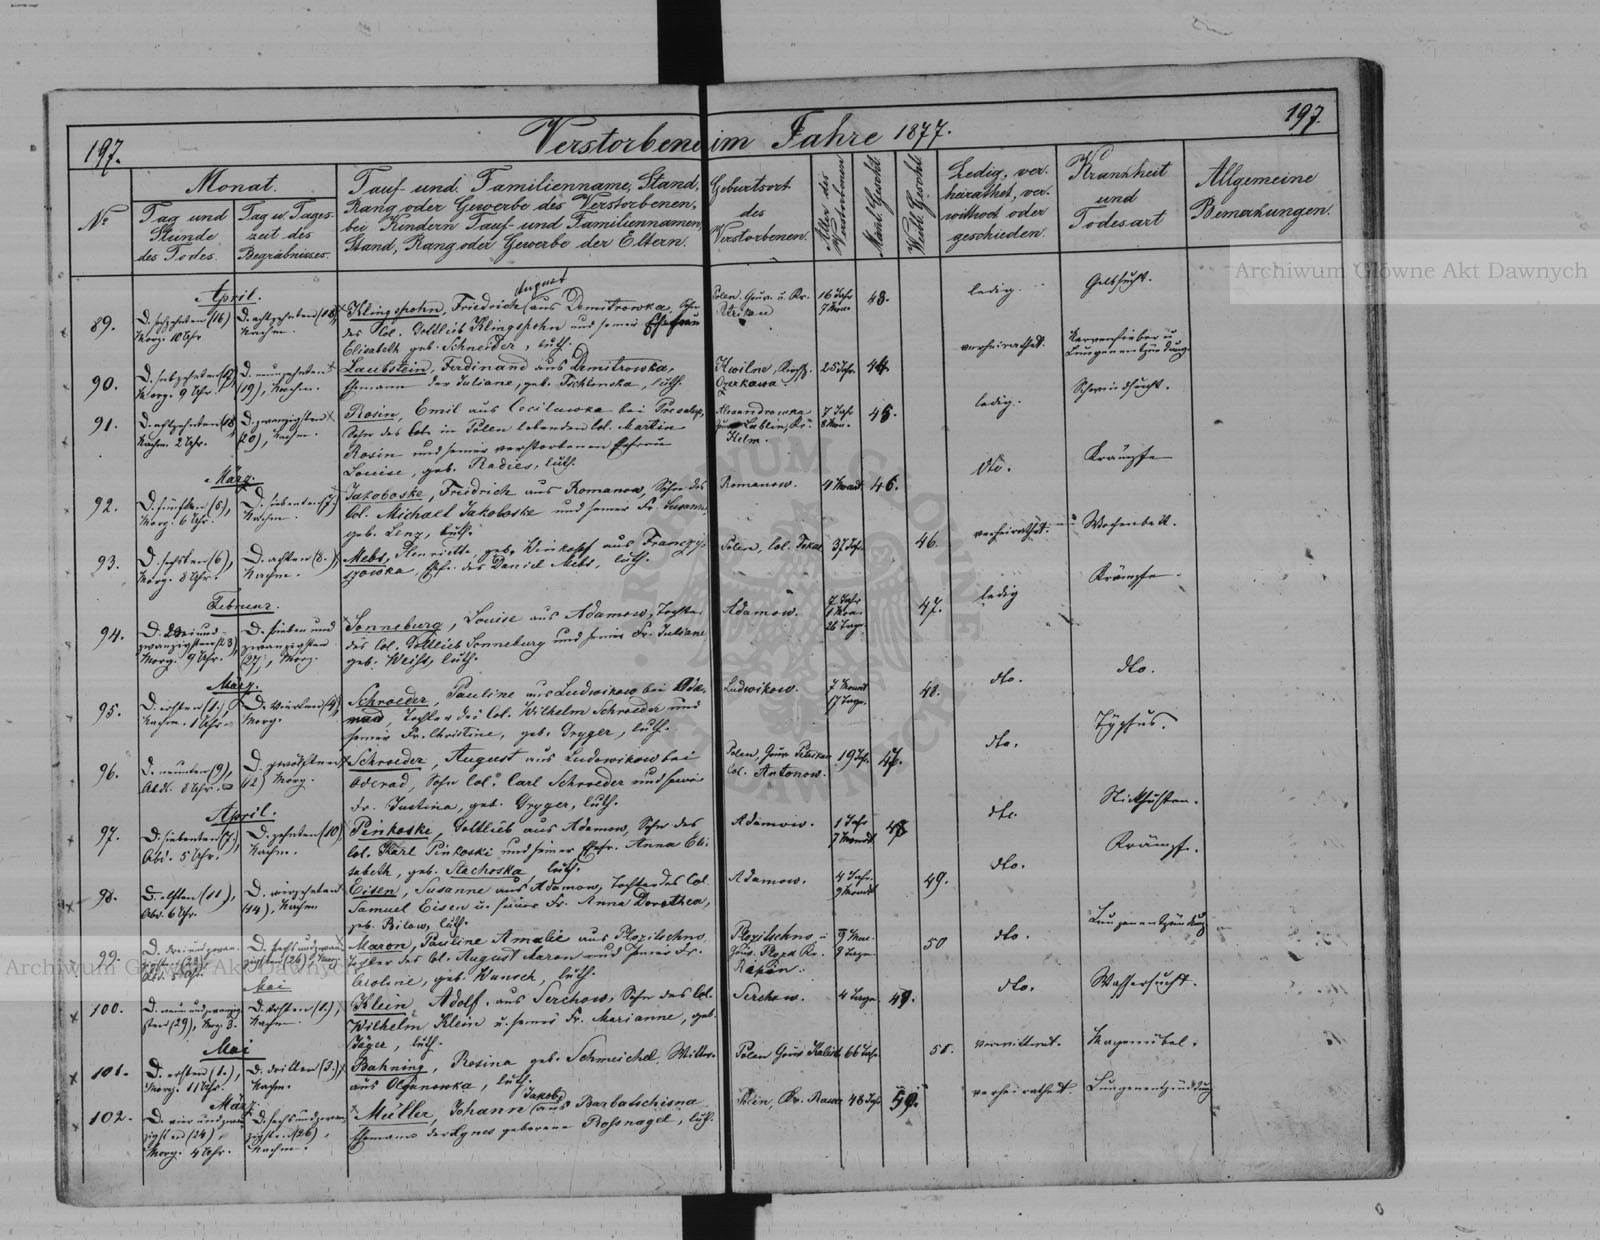 197.
Verstorbene im Jahre 1877.
197.
No
Monat.
Tag und Stunde des Todes.
Tag u. Tageszeit des Begräbnisses.
Tauf und Familienname, Stand,
Rang oder Gewerbe des Verstorbenen,
bei Kindern Tauf- und Familiennamen,
Stand, Rang oder Gewerbe der Eltern.
Geburtsort
des
Verstorbenen.
Alter des Verstorbenen
Männl. Geschl.
Weibl. Geschl.
Ledig, ver-
heirathet, ver-
wittwet oder
geschieden.
Krankheit
und
Todesart
Allgemeine
Bemerkungen.
Archiwum Główne Akt Dawnych
April.
89.
D. sechzehnten (16)
Morg. 10 Uhr
D. achtzehnten (18),
Nachm.
August
Klingspohn, Friedrich aus Demitrowka, Sohn
des Col. Gottlieb Klingspohn und seiner Ehefrau
Elisabeth geb. Schneider, luth.
Polen, Gouv. u. Kr.
16 Jahr
7 Mon.
43.
ledig.
Gelbsucht.
90.
Morg. 9 Uhr.
D. neunzehnten
(19), Nachm.
Laubstein, Ferdinand aus Demitrowka,
Ehemann der Juliane, geb. luth.
25 Jahr.
44.
verheirathet.
Nervenfieber u.
Lungenentzündung
91.
D. achtzehnten (18)
Nachm. 2 Uhr.
D. zwanzigsten
(20), Nachm.
Rosin, Emil aus Cecilawka bei
Sohn des in Polen lebenden Col. Martin
Rosin und seiner verstorbenen Ehefrau
Louise, geb. Radies, luth.
Alexandrowka
Gouv. Lublin, Kr.
7 Jahr
8 Mon.
45.
ledig.
Schwindsucht.
März.
92.
D. fünften (5),
Morg. 6 Uhr.
D. siebenten (7.)
Nachm.
Jakoboske, Friedrich aus Romanow, Sohn des
Col. Michael Jakoboske und seiner Fr. Susanna
geb. Lenz, luth.
Romanow.
4 Monat
46.
dto.
Krämpfe
93.
D. sechsten (6),
Morg. 8 Uhr.
D. achten (8.),
Nachm.
Mebs, Henriette, geb. Winkopf aus
Ehefr. des Daniel Mebs, luth.
Polen, Col.
37 Jahr.
46.
verheirathet.
Wochenbett.
Februar.
94.
D. dreiund-
zwanzigsten (23),
Morg. 9 Uhr.
D. sieben und
zwanzigsten
(27), Morg.
Sonneburg, Louise aus Adamow, Tochter
des Col. Gottlieb Sonneburg und seiner Fr. Juliane
geb. Weiss, luth.
Adamow.
7 Jahr
1 Mon.
26 Tage.
47.
ledig
Krämpfe.
März.
95.
D. ersten (1.),
Nachm. 1 Uhr.
D. vierten (4),
Morg.
Schroeder, Pauline aus Ludwikow bei
Tochter des Col. Wilhelm Schroeder und
seiner Fr. Christine, geb. Dryger, luth.
Ludwikow.
7 Monat
17 Tage.
48.
dto.
dto.
96.
D. neunten (9),
D. zwölften
(12) Morg.
Schroeder, August aus Ludowikow bei
Oderad, Sohn Col. Carl Schroeder und seiner
Fr. Justina, geb. Dryger, luth.
Polen, Gouv.
Col. Antonow.
19 Jahr.
47.
dto.
Typhus.
April.
97.
D. siebenten (7.),
Abd. 5 Uhr.
D. zehnten (10)
Nachm.
Pinkoske, Gottlieb aus Adamow, Sohn des
Col. Karl Pinkoski und seiner Ehefr. Anna Eli-
sabeth, geb. Stachoska, luth.
Adamow.
1 Jahr
7 Monat
48.
dto.
Stickhusten.
98.
D. elften (11),
Abd. 6 Uhr.
D. vierzehnten
(14), Nachm.
Eisen, Susanne aus Adamow, Tochter des Col.
Samuel Eisen u. seiner Fr. Anna Dorothea,
geb. Bilow, luth.
Adamow.
4 Jahr.
9 Monat
49.
dto.
Krämpfe.
99.
D. sechs undzwan-
zigsten (26)
Maron, Pauline Amalie aus
Tochter des Col. August Maron und seiner Fr.
Caroline, geb. Wunsch, luth.
Gouv. Kr.
9 Mon.
9 Tage.
50
dto.
Lungenentzündung
Archiwum Główne Akt Dawnych
Mai
100.
D. neunundzwanzig-
sten (29),
D. ersten (1.),
Nachm.
Klein, Adolf, aus Serchow, Sohn des Col.
Wilhelm Klein u. seiner Fr. Marianne, geb.
Jäger, luth.
Serchow.
4 Tage.
49.
dto.
Wassersucht.
Mai
101.
D. ersten (1.),
Morg. 11 Uhr.
D. dritten (3.)
Nachm.
Bahning, Rosina geb. Schmeichel, Wittwe
aus Olganowka, luth.
Polen Gouv. Kalisch
66 Jahr.
51.
verwittwet.
Magenübel.
März.
102.
D. vier und zwan-
zigsten (24),
Morg. 4 Uhr.
D. sechs und zwan-
zigsten (26),
Nachm.
Jakob,
Müller, Johann aus Barbatschisna
Ehemann der Agnes geborene Rossnagel, luth.
Polen, Kr.
48 Jahr
50.
verheirathet.
Lungenentzündung